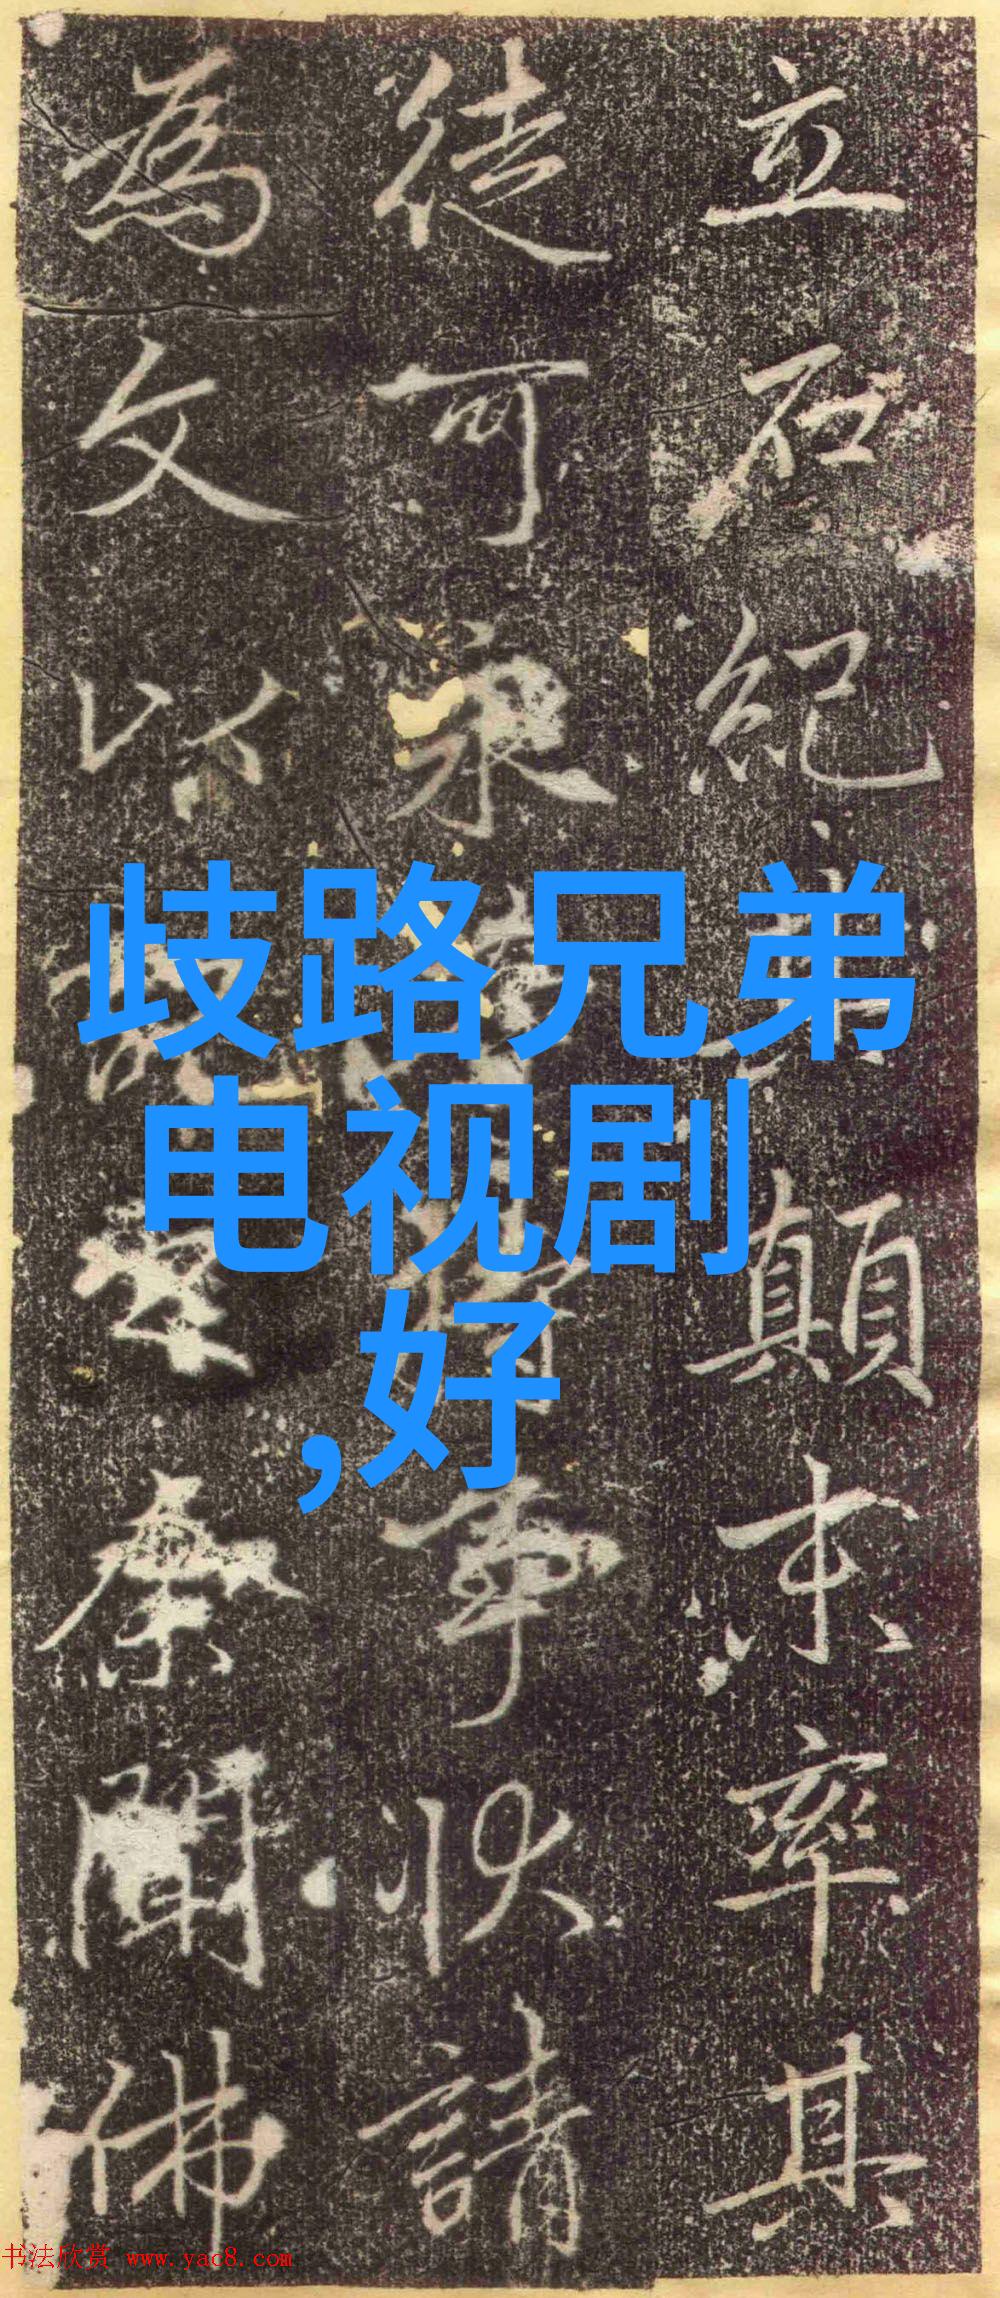 立石紀
顛末率其
徒可
事状請
為文以
秦聞佛
歧路兄弟
电视剧
,好
书法欣赏 www.yac8.com